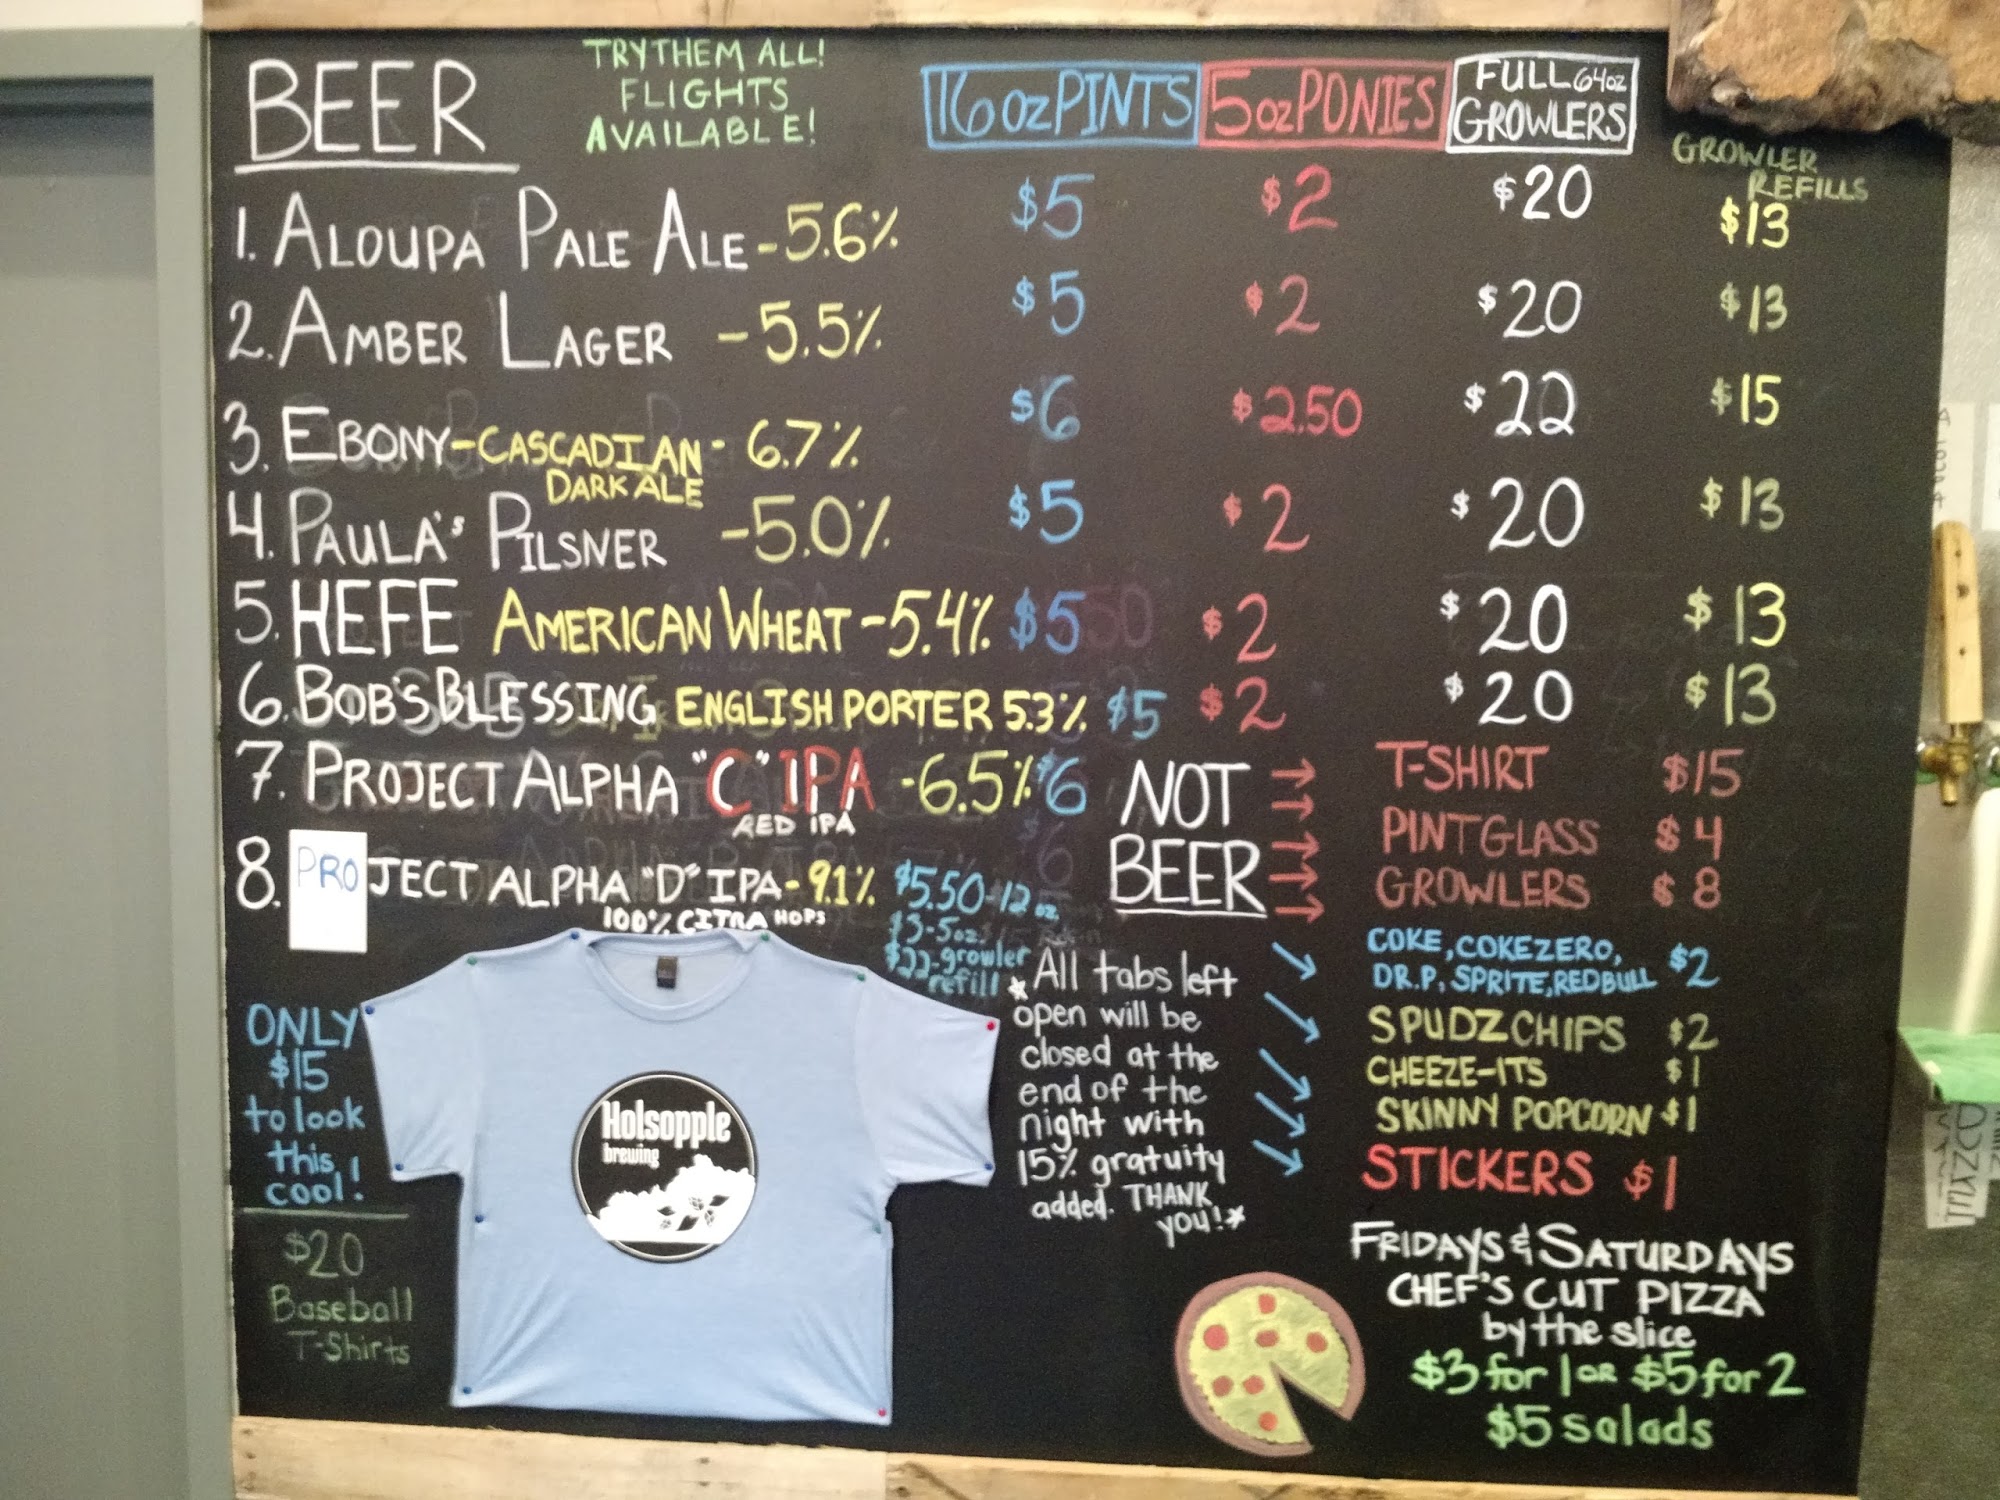 BEER
TRY THEM ALL!
FLIGHTS
AVAILABLE!
16 oz PINTS
5 oz PONIES
FULL 64oz
GROWLERS
GROWLER
REFILLS
1. ALOUPA PALE ALE - 5.6% $5 $2 $20 $13
2. AMBER LAGER - 5.5% $5 $2 $20 $13
3. EBONY - CASCADIAN - 6.7% $6 $2.50 $22 $15
DARK ALE
4. PAULA'S PILSNER - 5.0% $5 $2 $20 $13
5. HEFE AMERICAN WHEAT - 5.4% $5 $2 $20 $13
6. BOB'S BLESSING ENGLISH PORTER 5.3% $5 $2 $20 $13
7. PROJECT ALPHA "C" IPA - 6.5% $6
RED IPA
8. PROJECT ALPHA "D" IPA - 9.1% $5.50-12 oz.
100% CITRA HOPS
$3-5oz.
$22-growler
refill
NOT
BEER
T-SHIRT $15
PINT GLASS $4
GROWLERS $8
COKE, COKE ZERO,
DR. P, SPRITE, RED BULL $2
SPUDZ CHIPS $2
CHEEZE-ITS $1
SKINNY POPCORN $1
STICKERS $1
*All tabs left
open will be
closed at the
end of the
night with
15% gratuity
added. THANK
you!*
ONLY
$15
to look
this
cool!
$20
Baseball
T-Shirts
Holsopple
brewing
FRIDAYS & SATURDAYS
CHEF'S CUT PIZZA
by the slice
$3 for 1 OR $5 for 2
$5 salads